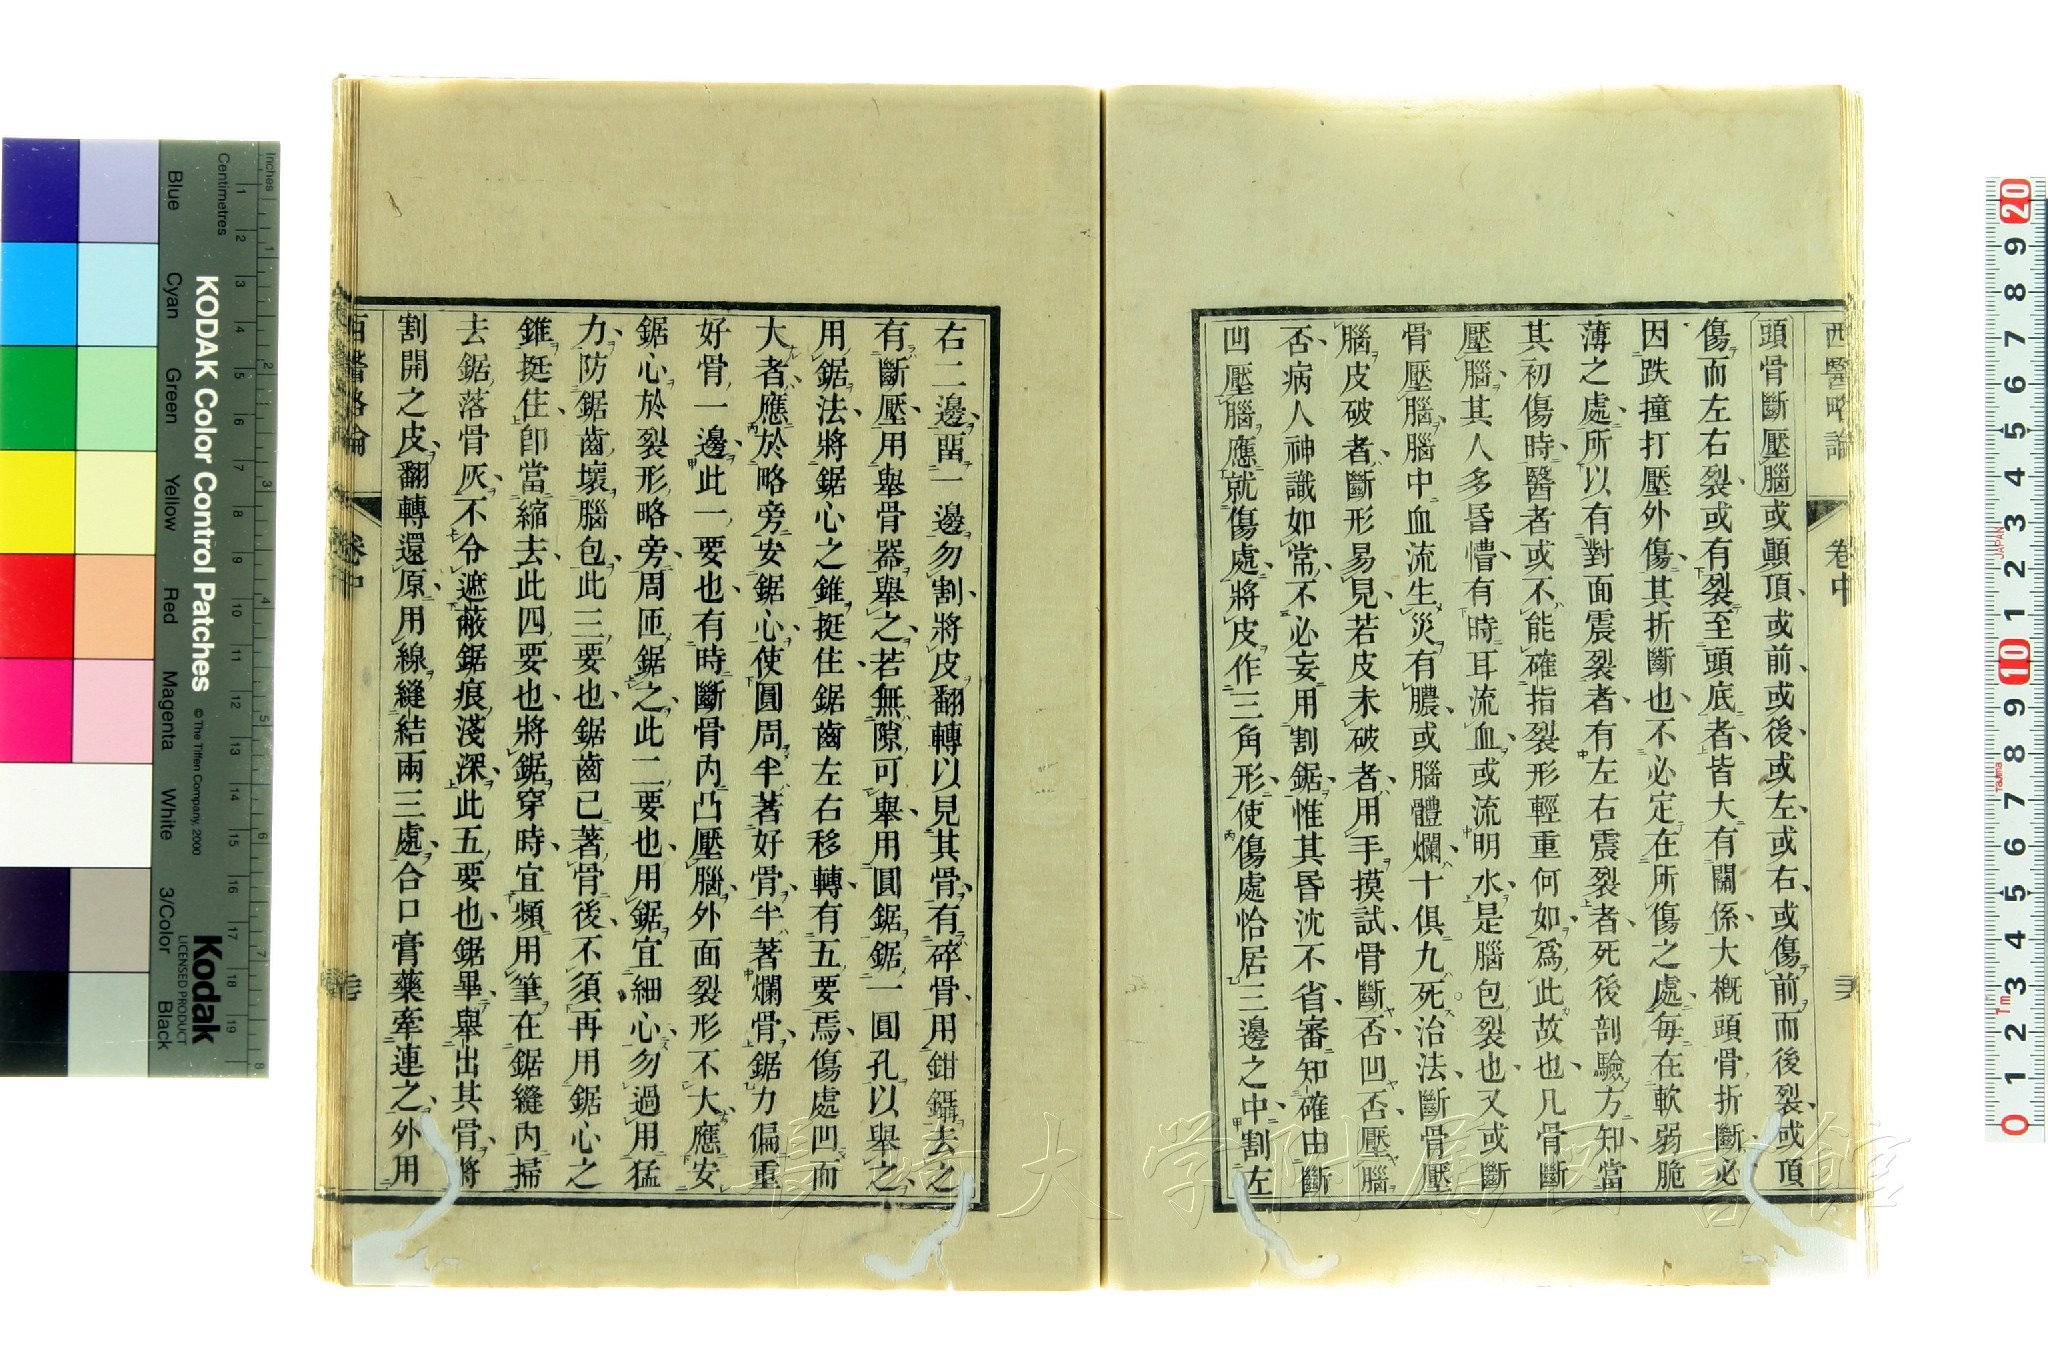 西醫略論
卷中
頭骨斷壓腦或顚頂或前或後或左或右或傷前而後裂或頂
傷而左右裂或有裂至頭底者皆大有關係大槪頭骨折斷必
因跌撞打壓外傷其折斷也不必定在所傷之處每在軟弱脆
薄之處所以有對面震裂者有左右震裂者死後剖驗方知當
其初傷時醫者或不能確指裂形輕重何如爲此故也凡骨斷
壓腦其人多昏懵有時耳流血或流明水是腦包裂也又或斷
骨壓腦腦中血流生災有膿或腦體爛十俱九死治法斷骨壓
腦皮破者斷形易見若皮未破者用手摸試骨斷否凹否壓腦
否病人神識如常不必妄用割鋸惟其昏沈不省審知確由斷
凹壓腦應就傷處將皮作三角形使傷處恰居三邊之中割左
右二邊畱一邊勿割將皮翻轉以見其骨有碎骨用鉗鑷去之
有斷壓用舉骨器舉之若無隙可舉用圓鋸鋸一圓孔以舉之
用鋸法將鋸心之錐挺住鋸齒左右移轉有五要焉傷處凹而
大者應於略旁安鋸心使圓周半著好骨半著爛骨鋸力偏重
好骨一邊此一要也有時斷骨內凸壓腦外面裂形不大應安
鋸心於裂形略旁周匝鋸之此二要也用鋸宜細心勿過用猛
力防鋸齒壞腦包此三要也鋸齒已著骨後不須再用鋸心之
錐挺住卽當縮去此四要也將鋸穿時宜頻用筆在鋸縫內掃
去鋸落骨灰不令遮蔽鋸痕淺深此五要也鋸畢舉出其骨將
割開之皮翻轉還原用線縫結兩三處合口膏藥牽連之外用
西醫略論
卷中
Inches
Centimetres
KODAK Color Control Patches
© The Tiffen Company, 2000
Kodak
LICENSED PRODUCT
Blue
Cyan
Green
Yellow
Red
Magenta
White
3/Color
Black
長崎大学附属図書館